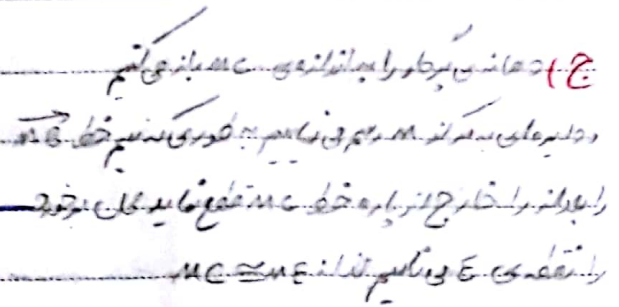 ج) دهانه‌ی پرگار را به اندازه‌ی MC باز می‌کنیم
و دایره‌ای به مرکز M رسم می‌نماییم به طوری که نیم خط MB
را بعد از خارج از پاره خط MC قطع نماید محل برخورد
را نقطه‌ی E می‌نامیم MC ≅ ME